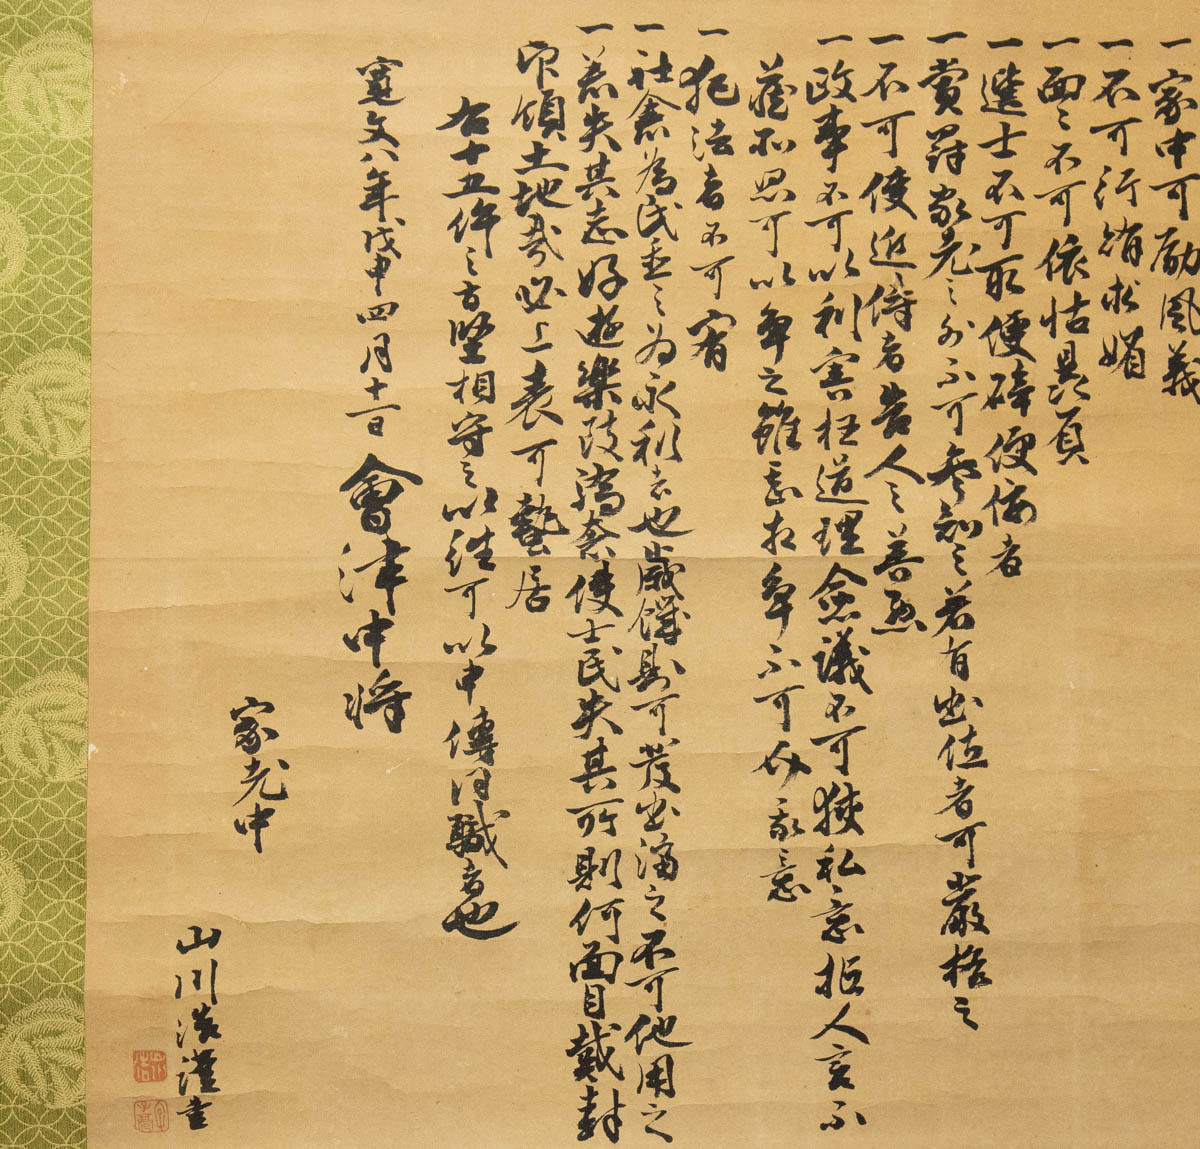 一家中可励風義
一不可行賄求媚
一面々不可依怙贔屓
一選士不可取便辟便侫者
一賞罰家老之外不可参知之若有出位者可厳格之
一不可使近侍者告人之善悪
一政事不可以利害枉道理僉議不可挟私意拒人言不
蔵所思可以争之雖甚相争不可介我意
一犯法者不可宥
一社倉為民置之為永利者也歳饑則可發出済之不可他用之
一若失其志好遊樂致驕奢使士民失其所則何面目戴封
印領土地哉必上表可蟄居
右十五件之旨堅相守之以往可以申傳同職者也
寛文八年戊申四月十一日 會津中将
家老中
山川浩謹書